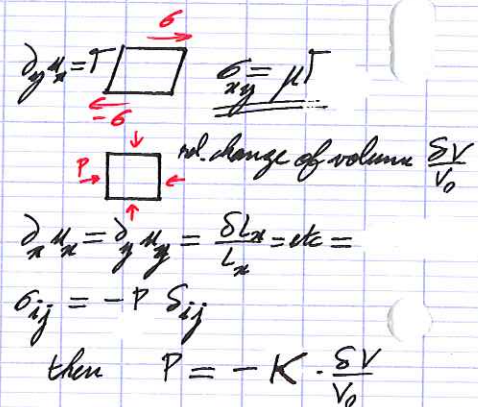 σ
∂_y u_x = Γ
σ_xy = μΓ
-σ
P
rel. change of volume δV/V₀
∂_x u_x = ∂_y u_y = δL_x/L_x = etc =
σ_ij = -P δ_ij
then P = -K · δV/V₀